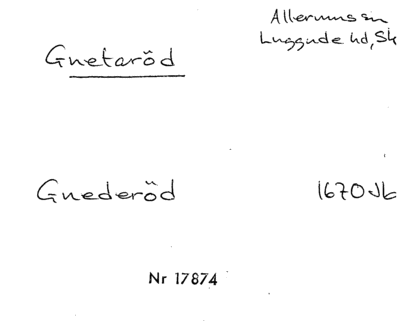 Allerums sn
Luggude hd, Sk
Gnetaröd
Gnederöd 1670 Jb
Nr 17874